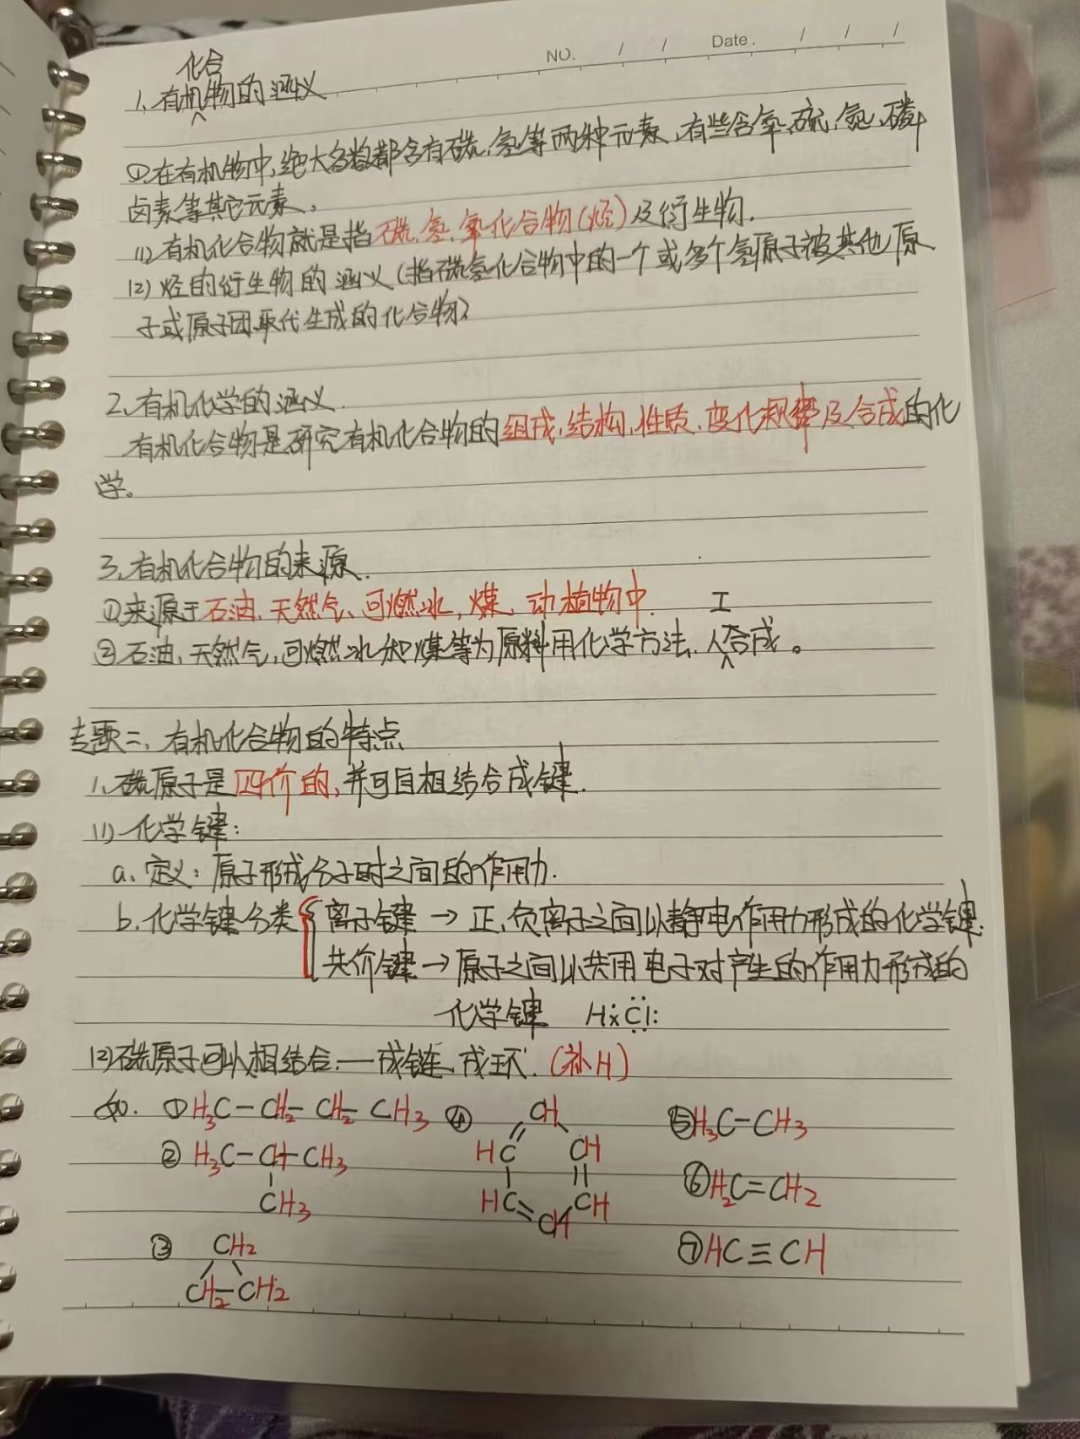 NO. / / Date. / / /
1、有机化合物的涵义
①在有机物中,绝大多数都含有碳、氢等两种元素,有些含氧、硫、氮、磷
卤素等其它元素。
(1)有机化合物就是指碳、氢、氧化合物(烃)及衍生物.
(2)烃的衍生物的涵义(指碳氢化合物中的一个或多个氢原子被其他原
子或原子团取代生成的化合物)
2、有机化学的涵义.
有机化合物是研究有机化合物的组成,结构,性质,变化规律及合成的化
学。
3、有机化合物的来源.
①来源于石油、天然气、可燃冰,煤、动植物中.
②石油、天然气,可燃冰和煤等为原料用化学方法、人工合成。
专题二、有机化合物的特点
1、碳原子是四价的,并可自相结合成键.
(1)化学键:
a、定义:原子形成分子时之间的作用力.
b、化学键分类{离子键→正、负离子之间以静电作用力形成的化学键.
共价键→原子之间以共用电子对产生的作用力形成的
化学键 H×Cl:
(2)碳原子可以相结合—成链、成环.(补H)
如. ①H₃C-CH₂-CH₂-CH₃ ④ CH ⑤H₃C-CH₃
②H₃C-CH-CH₃ HC CH
CH₃ HC CH ⑥H₂C=CH₂
CH
③ CH₂ ⑦HC≡CH
CH₂-CH₂